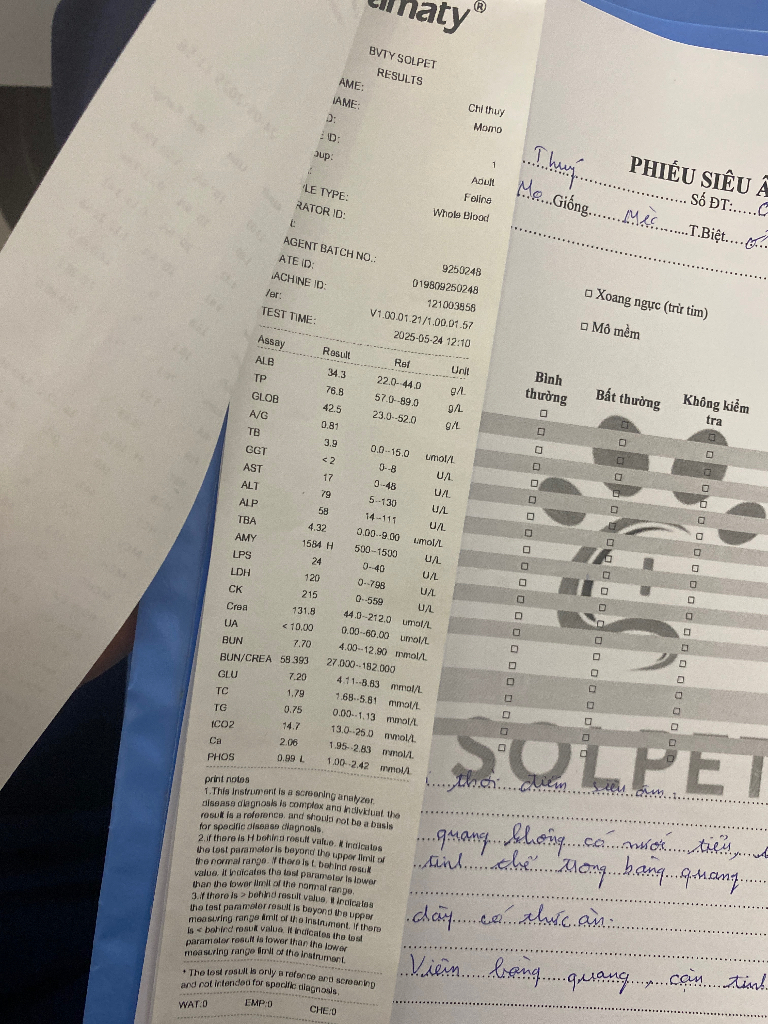 amaty®
BVTY SOLPET
RESULTS
AME: Chi thuy
AME: Momo
D:
ID: 1
oup: Adult
Feline
LE TYPE: Whole Blood
RATOR ID:
AGENT BATCH NO.: 9250248
ATE ID: 019809250248
ACHINE ID: 121003856
Ver: V1.00.01.21/1.00.01.57
TEST TIME: 2025-05-24 12:10
Assay Result Ref Unit
ALB 34.3 22.0--44.0 g/L
TP 76.8 57.0--89.0 g/L
GLOB 42.5 23.0--52.0 g/L
A/G 0.81
TB 3.9 0.0--15.0 umol/L
GGT <2 0--8 U/L
AST 17 0--48 U/L
ALT 79 5--130 U/L
ALP 58 14--111 U/L
TBA 4.32 0.00--9.00 umol/L
AMY 1584 H 500--1500 U/L
LPS 24 0--40 U/L
LDH 120 0--798 U/L
CK 215 0--559 U/L
Crea 131.8 44.0--212.0 umol/L
UA <10.00 0.00--60.00 umol/L
BUN 7.70 4.00--12.90 mmol/L
BUN/CREA 58.393 27.000--182.000
GLU 7.20 4.11--8.83 mmol/L
TC 1.79 1.68--5.81 mmol/L
TG 0.75 0.00--1.13 mmol/L
tCO2 14.7 13.0--25.0 mmol/L
Ca 2.06 1.95--2.83 mmol/L
PHOS 0.99 L 1.00--2.42 mmol/L
print notes
1.This instrument is a screening analyzer,
disease diagnosis is complex and individual, the
result is a reference, and should not be a basis
for specific disease diagnosis.
2.If there is H behind result value, it indicates
the test parameter is beyond the upper limit of
the normal range. If there is L behind result
value, it indicates the test parameter is lower
than the lower limit of the normal range.
3.If there is > behind result value, it indicates
the test parameter result is beyond the upper
measuring range limit of the instrument. If there
is < behind result value, it indicates the test
parameter result is lower than the lower
measuring range limit of the instrument.
* The test result is only a refence and screening
and not intended for specific diagnosis.
WAT:0 EMP:0 CHE:0
PHIẾU SIÊU Â
Thuý Số ĐT:
Mo Giống Mèo T.Biệt
□ Xoang ngực (trừ tim)
□ Mô mềm
Bình thường Bất thường Không kiểm tra
SOLPET
thời điểm siêu âm.
quang không có nước tiểu,
tinh thể trong bàng quang
dày có thức ăn.
Viêm bàng quang, cặn tinh